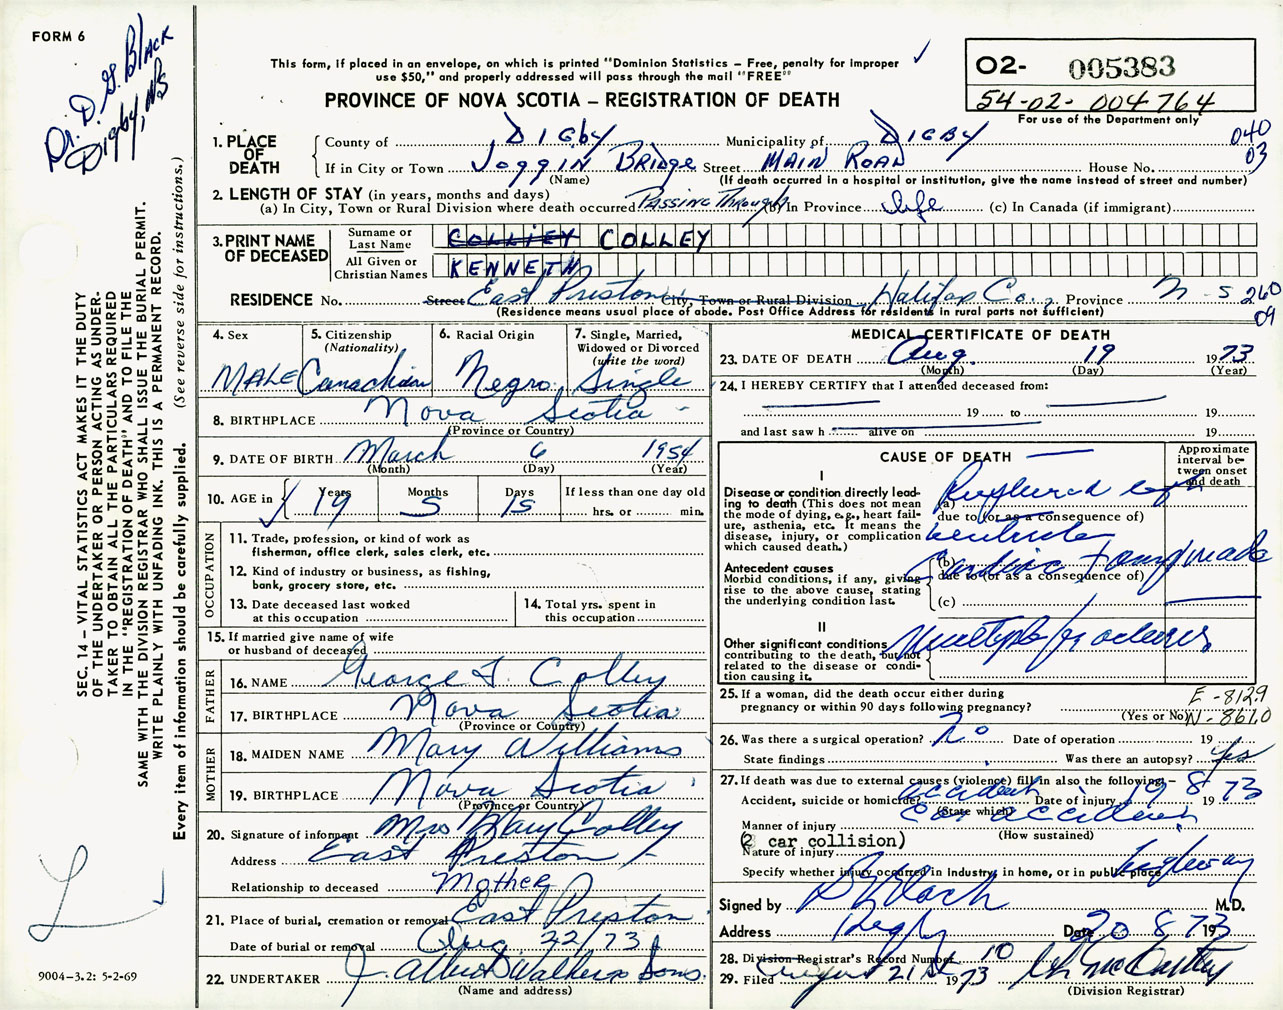 FORM 6
Dr. D. G. Black
Digby, NS
This form, if placed in an envelope, on which is printed "Dominion Statistics – Free, penalty for improper
use $50," and properly addressed will pass through the mail "FREE"
PROVINCE OF NOVA SCOTIA – REGISTRATION OF DEATH
02- 005383
54-02-004764
For use of the Department only
040
03
1. PLACE OF DEATH
County of Digby Municipality of Digby
If in City or Town Joggin Bridge Street Main Road House No.
(Name) (If death occurred in a hospital or institution, give the name instead of street and number)
2. LENGTH OF STAY (in years, months and days)
(a) In City, Town or Rural Division where death occurred Passing Through (b) In Province life (c) In Canada (if immigrant)
3. PRINT NAME OF DECEASED
Surname or Last Name COLLIEY COLLEY
All Given or Christian Names KENNETH
RESIDENCE No. Street East Preston City, Town or Rural Division Halifax Co., Province N S 260
09
(Residence means usual place of abode. Post Office Address for residents in rural parts not sufficient)
4. Sex MALE
5. Citizenship (Nationality) Canadian
6. Racial Origin Negro
7. Single, Married, Widowed or Divorced (write the word) Single
8. BIRTHPLACE Nova Scotia
(Province or Country)
9. DATE OF BIRTH March 6 1954
(Month) (Day) (Year)
10. AGE in Years 19 Months 5 Days 15 If less than one day old
hrs. or min.
OCCUPATION
11. Trade, profession, or kind of work as
fisherman, office clerk, sales clerk, etc.
12. Kind of industry or business, as fishing,
bank, grocery store, etc.
13. Date deceased last worked
at this occupation
14. Total yrs. spent in
this occupation
15. If married give name of wife
or husband of deceased
FATHER
16. NAME George T. Colley
17. BIRTHPLACE Nova Scotia
(Province or Country)
MOTHER
18. MAIDEN NAME Mary Williams
19. BIRTHPLACE Nova Scotia
(Province or Country)
20. Signature of informant Mrs Mary Colley
Address East Preston
Relationship to deceased Mother
21. Place of burial, cremation or removal East Preston
Date of burial or removal Aug 22/73
22. UNDERTAKER J. Albert Walker & Sons.
(Name and address)
MEDICAL CERTIFICATE OF DEATH
23. DATE OF DEATH Aug. 19 1973
(Month) (Day) (Year)
24. I HEREBY CERTIFY that I attended deceased from:
19 to 19
and last saw h alive on 19
CAUSE OF DEATH
Approximate interval between onset and death
I
Disease or condition directly lead-
ing to death (This does not mean
the mode of dying, e.g., heart fail-
ure, asthenia, etc. It means the
disease, injury, or complication
which caused death.)
(a) Ruptured left
due to (or as a consequence of)
ventricle
Antecedent causes
Morbid conditions, if any, giving
rise to the above cause, stating
the underlying condition last.
(b) Cardiac tamponade
due to (or as a consequence of)
(c)
II
Other significant conditions
contributing to the death, but not
related to the disease or condi-
tion causing it.
Multiple fractures
25. If a woman, did the death occur either during
pregnancy or within 90 days following pregnancy?
(Yes or No)
E-8129
N-861.0
26. Was there a surgical operation? No Date of operation 19
State findings Was there an autopsy? Yes
27. If death was due to external causes (violence) fill in also the following:–
Accident, suicide or homicide accident Date of injury 19 8 1973
(State which)
Manner of injury Car accident
(How sustained)
(2 car collision)
Nature of injury
Specify whether injury occurred in industry, in home, or in public place highway
Signed by D G Black M.D.
Address Digby Date 20 8 1973
28. Division Registrar's Record Number 10
29. Filed August 21st 1973
(Division Registrar)
SEC. 14 – VITAL STATISTICS ACT MAKES IT THE DUTY
OF THE UNDERTAKER OR PERSON ACTING AS UNDER-
TAKER TO OBTAIN ALL THE PARTICULARS REQUIRED
IN THE "REGISTRATION OF DEATH" AND TO FILE THE
SAME WITH THE DIVISION REGISTRAR WHO SHALL ISSUE THE BURIAL PERMIT.
WRITE PLAINLY WITH UNFADING INK. THIS IS A PERMANENT RECORD.
Every item of information should be carefully supplied. (See reverse side for instructions.)
L
9004–3.2: 5-2-69